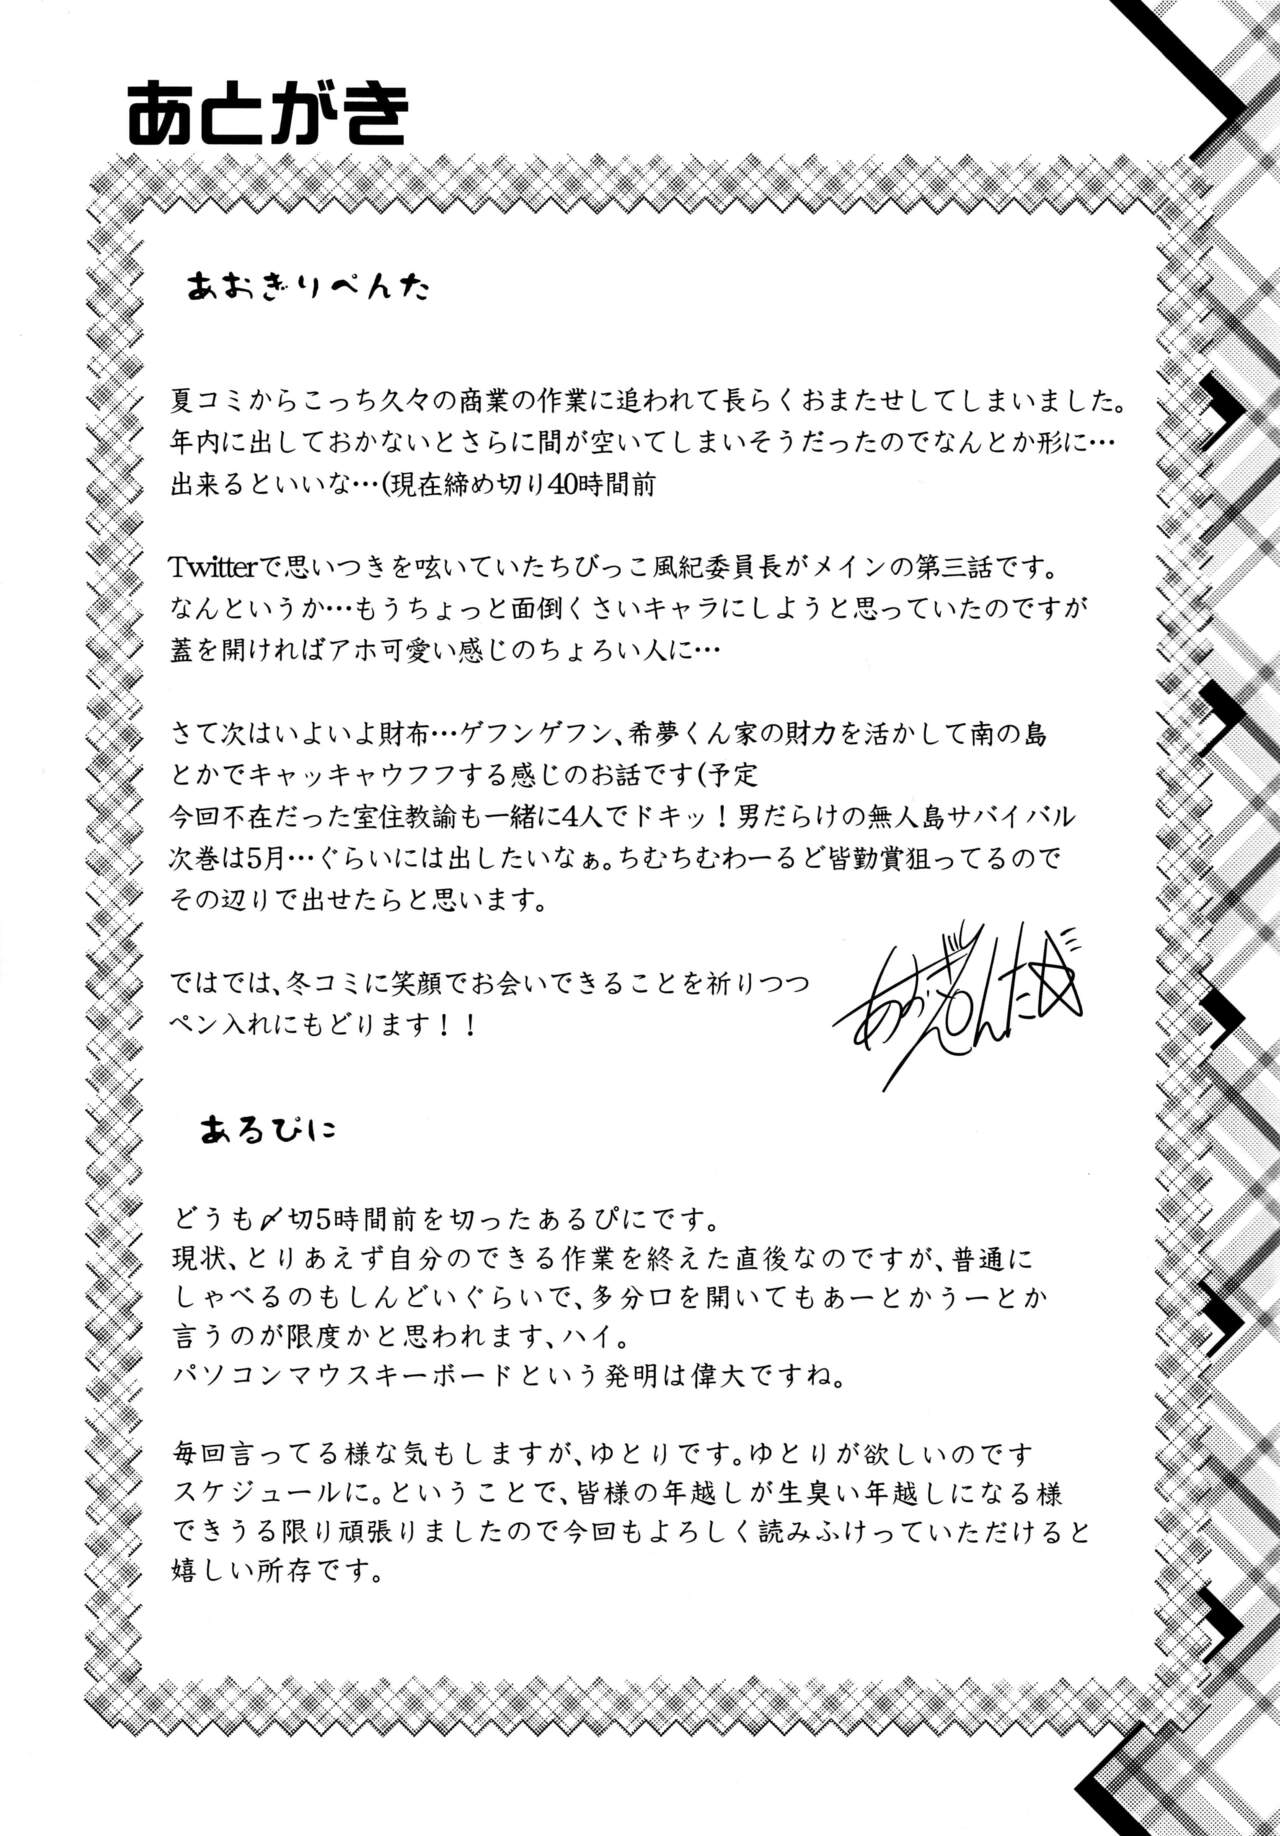 あとがき
あおぎりぺんた
夏コミからこっち久々の商業の作業に追われて長らくおまたせしてしまいました。
年内に出しておかないとさらに間が空いてしまいそうだったのでなんとか形に…
出来るといいな…(現在締め切り40時間前
Twitterで思いつきを呟いていたちびっこ風紀委員長がメインの第三話です。
なんというか…もうちょっと面倒くさいキャラにしようと思っていたのですが
蓋を開ければアホ可愛い感じのちょろい人に…
さて次はいよいよ財布…ゲフンゲフン、希夢くん家の財力を活かして南の島
とかでキャッキャウフフする感じのお話です(予定
今回不在だった室住教諭も一緒に4人でドキッ！男だらけの無人島サバイバル
次巻は5月…ぐらいには出したいなぁ。ちむちむわーるど皆勤賞狙ってるので
その辺りで出せたらと思います。
ではでは、冬コミに笑顔でお会いできることを祈りつつ
ペン入れにもどります！！
あおぎりぺんた☆
あるぴに
どうも〆切5時間前を切ったあるぴにです。
現状、とりあえず自分のできる作業を終えた直後なのですが、普通に
しゃべるのもしんどいぐらいで、多分口を開いてもあーとかうーとか
言うのが限度かと思われます、ハイ。
パソコンマウスキーボードという発明は偉大ですね。
毎回言ってる様な気もしますが、ゆとりです。ゆとりが欲しいのです
スケジュールに。ということで、皆様の年越しが生臭い年越しになる様
できうる限り頑張りましたので今回もよろしく読みふけっていただけると
嬉しい所存です。